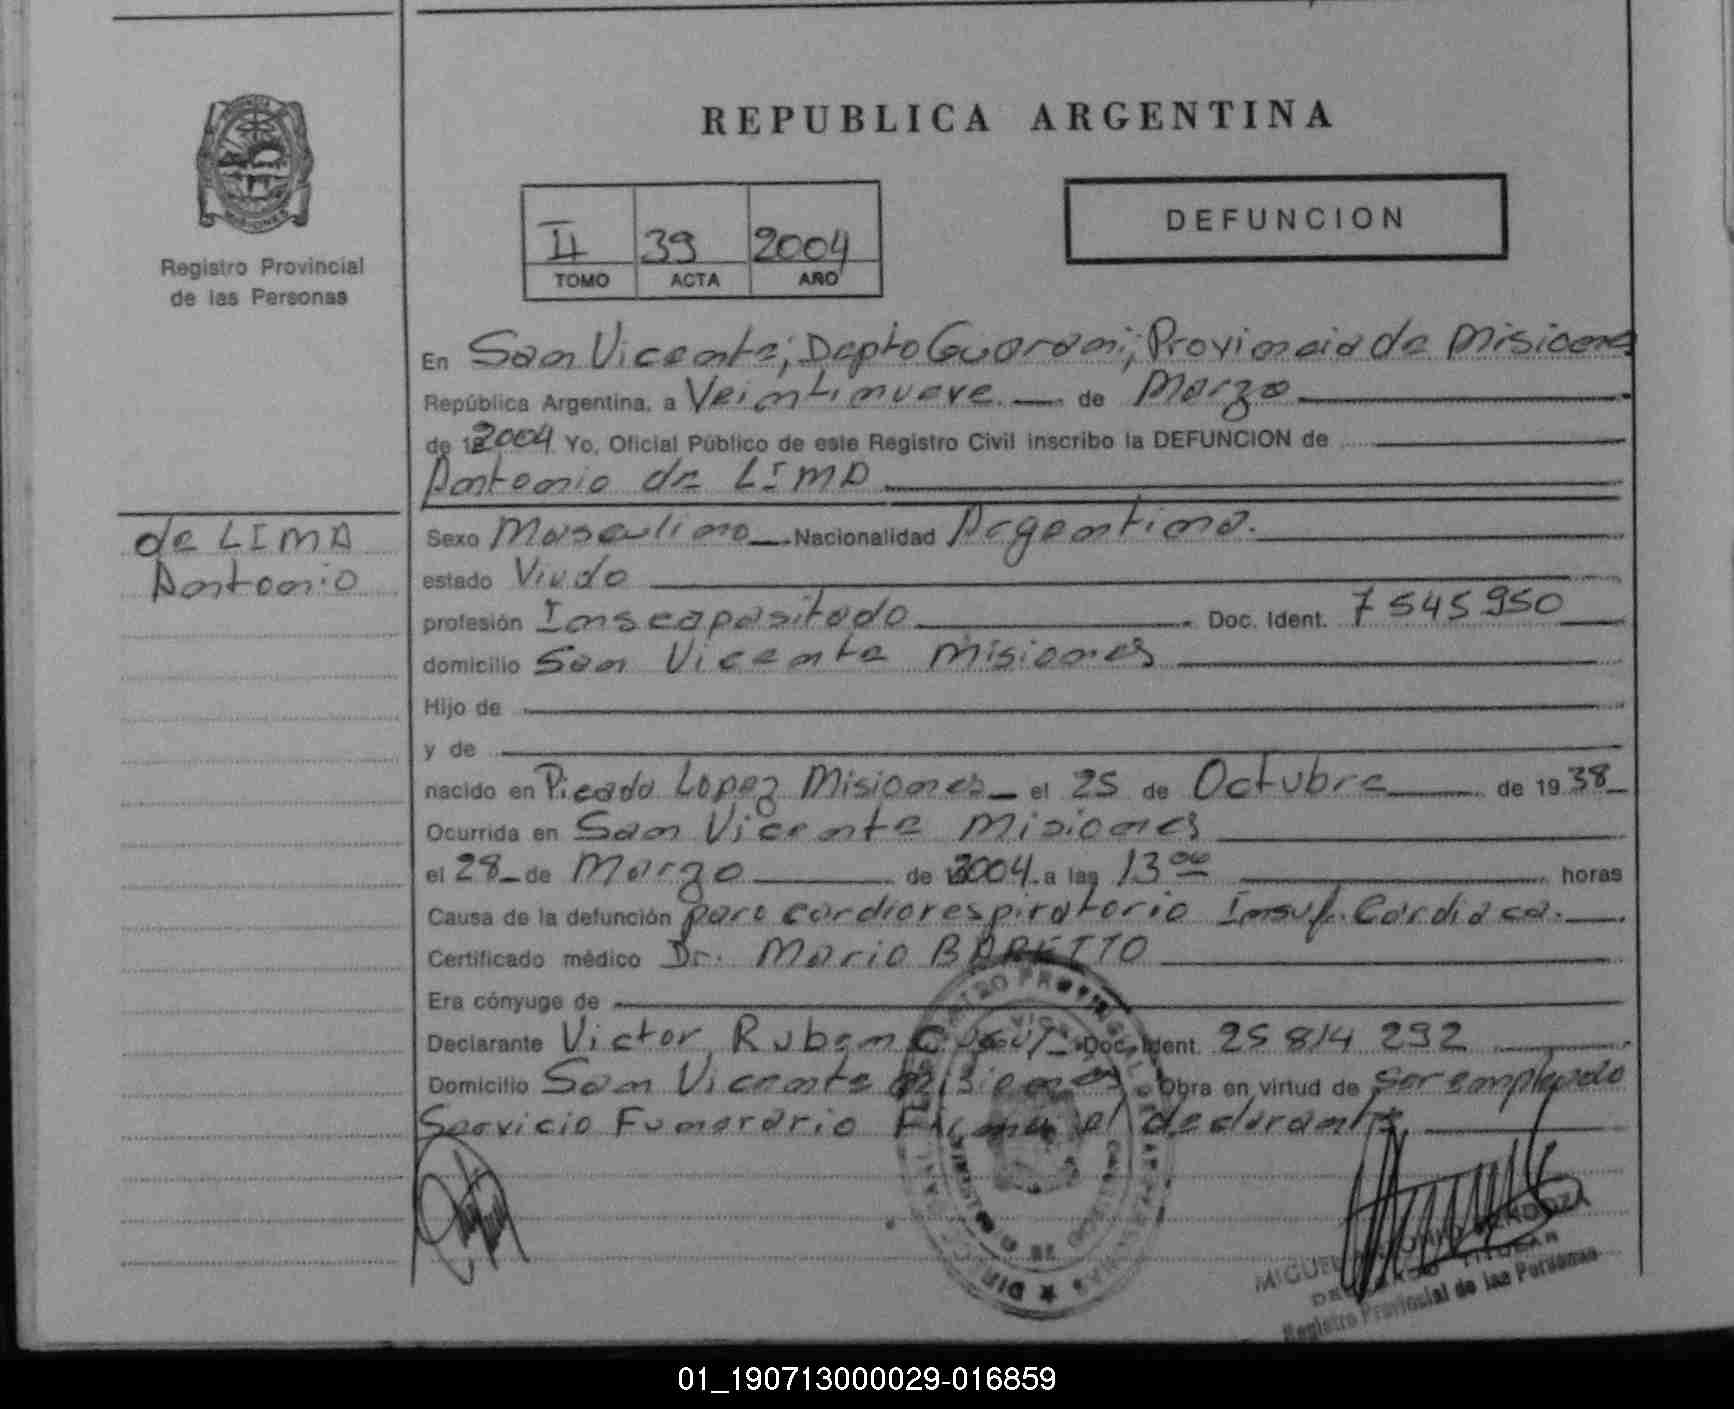 REPUBLICA ARGENTINA
DEFUNCION
II 39 2004
TOMO ACTA AÑO
Registro Provincial
de las Personas
En San Vicente, Depto Guarani, Provincia de Misiones
República Argentina, a Veintinueve de Marzo
de 2004 Yo, Oficial Público de este Registro Civil inscribo la DEFUNCION de
Antonio de LIMA
de LIMA
Antonio
Sexo Masculino Nacionalidad Argentina.
estado Viudo
profesión Inscapasitado Doc. Ident. 7545950
domicilio San Vicente Misiones
Hijo de
y de
nacido en Picada Lopez Misiones el 25 de Octubre de 1938
Ocurrida en San Vicente Misiones
el 28 de Marzo de 2004 a las 13 00 horas
Causa de la defunción paro cardiorespiratorio Insuf. Cardiaca.
Certificado médico Dr. Mario BAREITO
Era cónyuge de
Declarante Victor Ruben Doc. Ident. 25 814 292
Domicilio San Vicente Misiones Obra en virtud de ser empleado
Servicio Funerario Firma el declarante
MIGUEL MENDOZA
TITULAR
Registro Provincial de las Personas
01_190713000029-016859